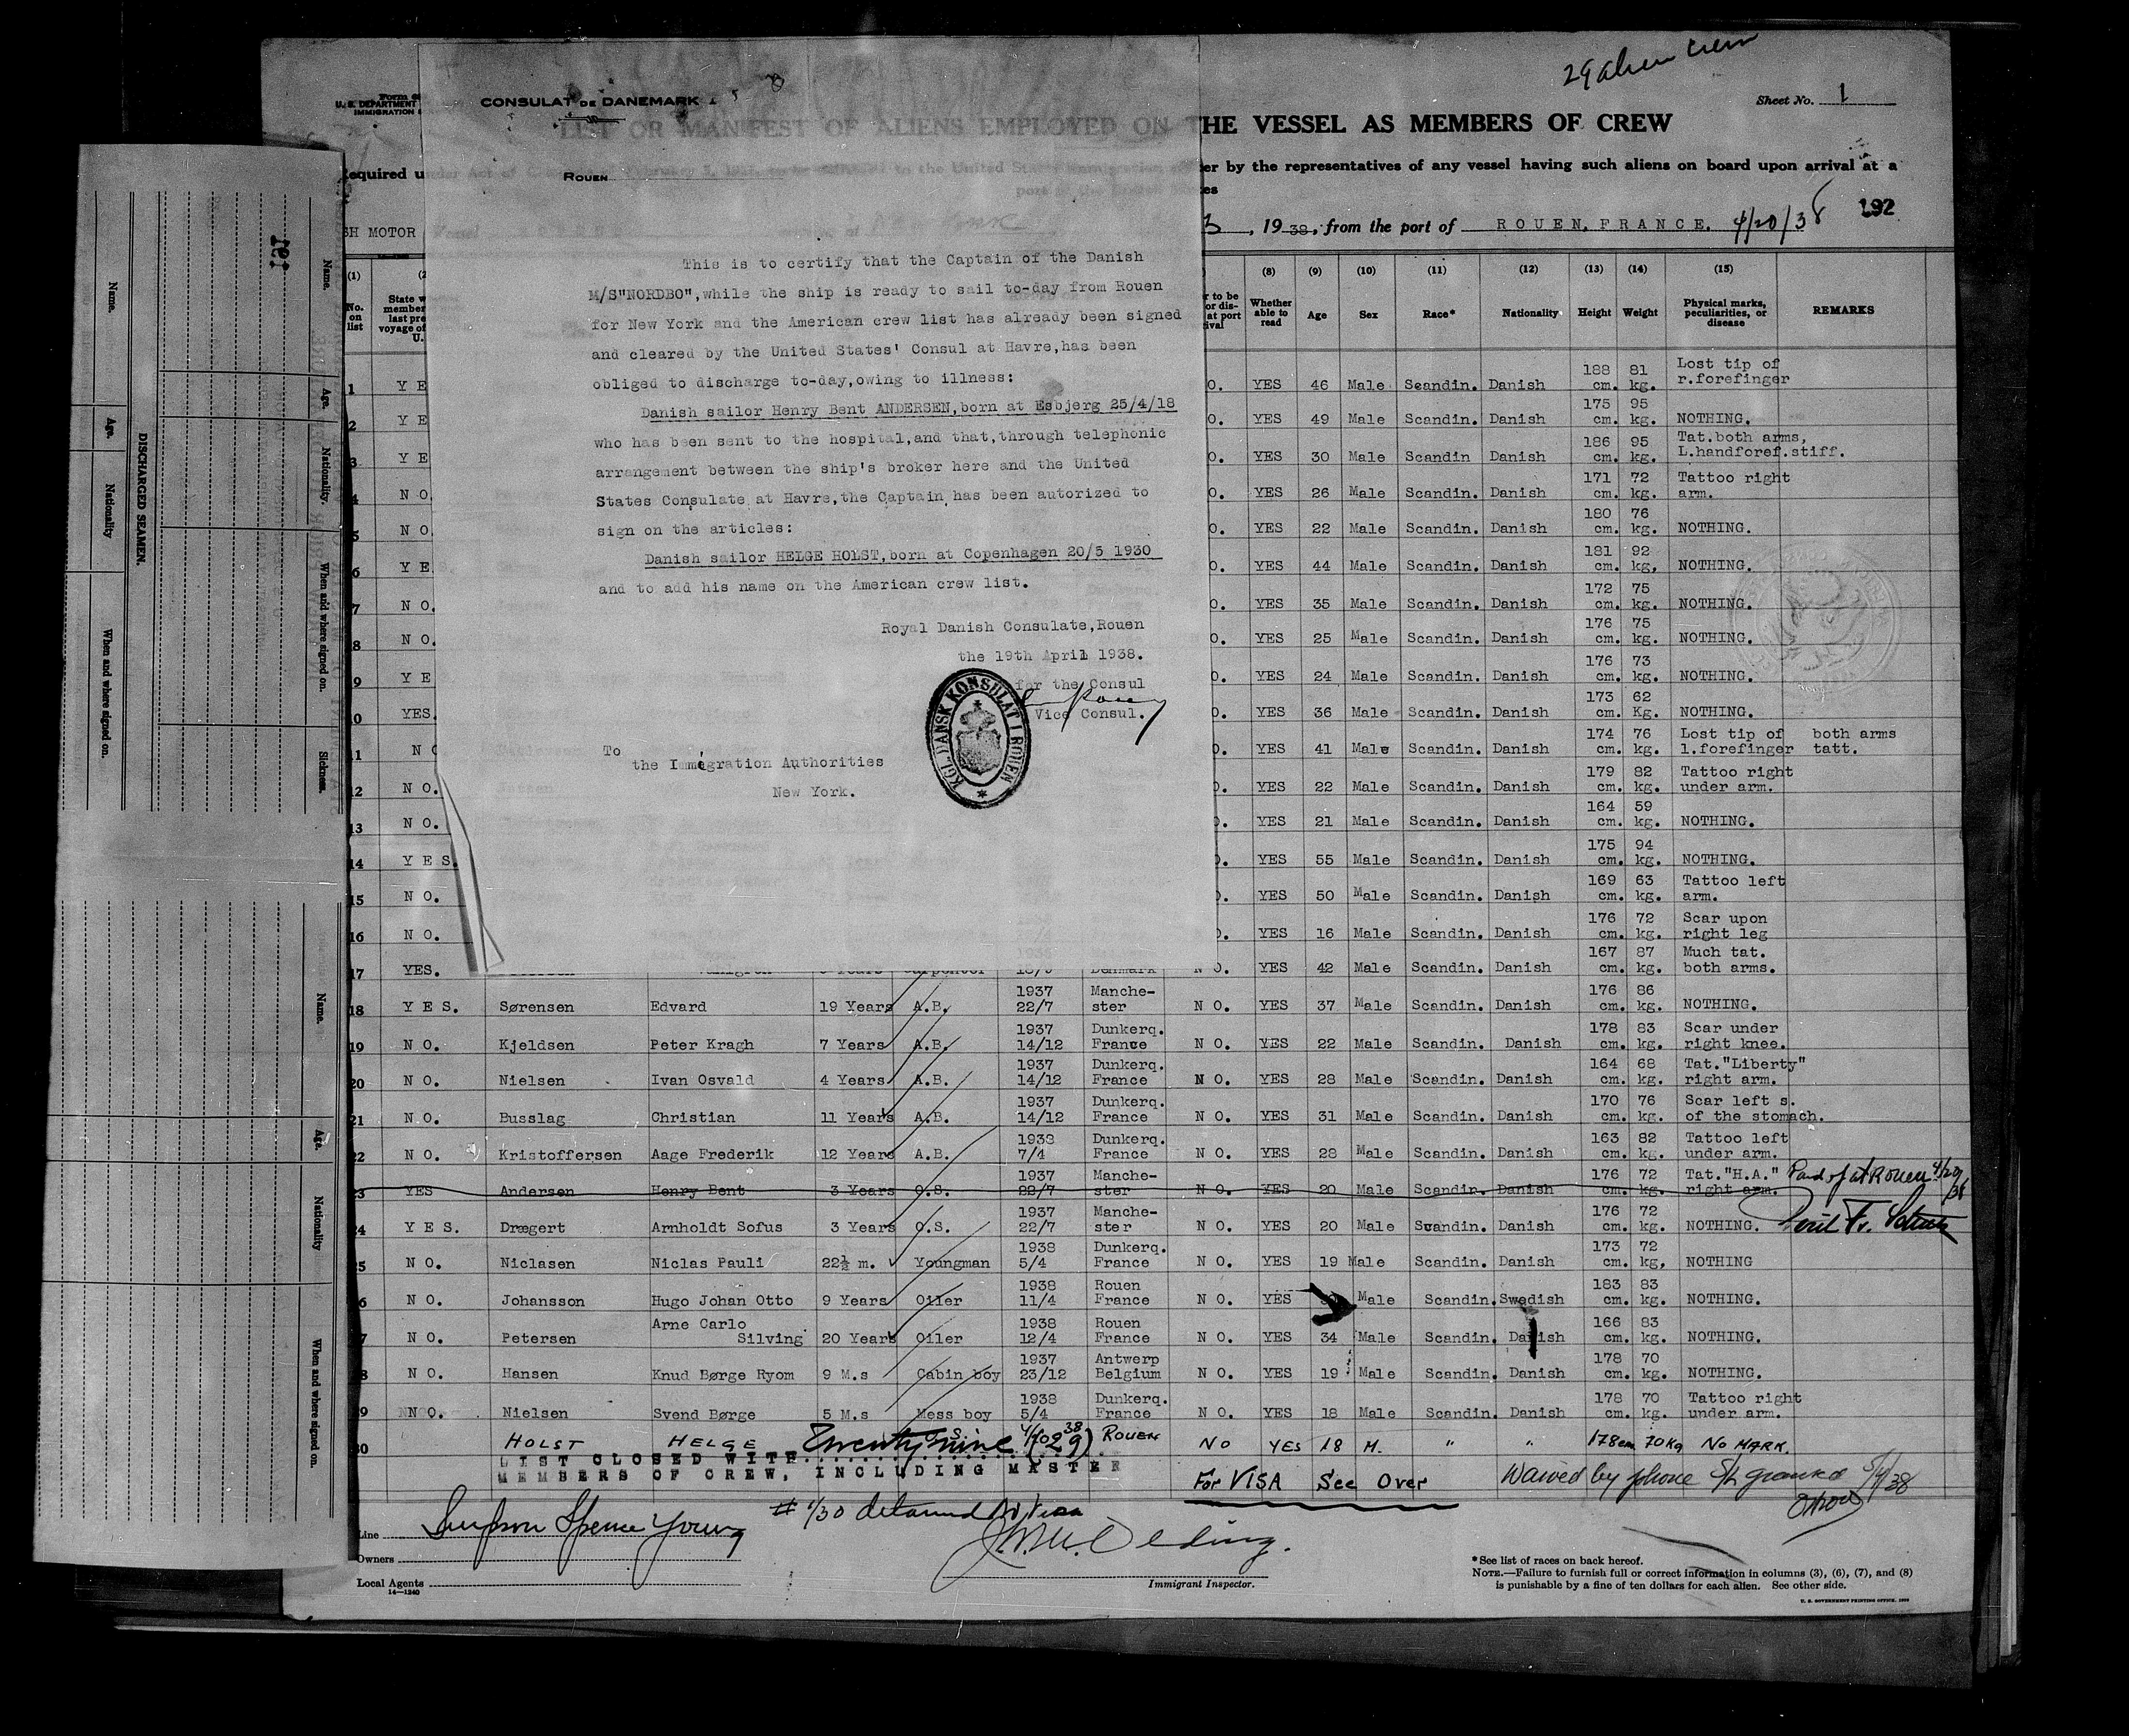 29 alien crew
Sheet No. 1
Form
U. S. DEPARTMENT
IMMIGRATION
CONSULAT DE DANEMARK
LIST OR MANIFEST OF ALIENS EMPLOYED ON THE VESSEL AS MEMBERS OF CREW
Required under Act of
er by the representatives of any vessel having such aliens on board upon arrival at a
ROUEN
SH MOTOR
3, 1938, from the port of ROUEN, FRANCE. 4/20/38
192
This is to certify that the Captain of the Danish
M/S"NORDBO",while the ship is ready to sail to-day from Rouen
for New York and the American crew list has already been signed
and cleared by the United States' Consul at Havre,has been
obliged to discharge to-day,owing to illness:
Danish sailor Henry Bent ANDERSEN,born at Esbjerg 25/4/18
who has been sent to the hospital,and that,through telephonic
arrangement between the ship's broker here and the United
States Consulate at Havre,the Captain has been autorized to
sign on the articles:
Danish sailor HELGE HOLST,born at Copenhagen 20/5 1930
and to add his name on the American crew list.
Royal Danish Consulate,Rouen
the 19th April 1938.
for the Consul
Vice Consul.
KGL. DANSK KONSULAT I ROUEN
To
the Immegration Authorities
New York.
(1) (8) (9) (10) (11) (12) (13) (14) (15)
No. on list
Whether able to read Age Sex Race* Nationality Height Weight Physical marks, peculiarities, or disease REMARKS
1 YE O. YES 46 Male Scandin. Danish 188 cm. 81 kg. Lost tip of r.forefinger
2 YE O. YES 49 Male Scandin. Danish 175 cm. 95 kg. NOTHING.
3 YE O. YES 30 Male Scandin Danish 186 cm. 95 kg. Tat.both arms, L.handforef.stiff.
4 NO. O. YES 26 Male Scandin. Danish 171 cm. 72 kg. Tattoo right arm.
5 NO. O. YES 22 Male Scandin. Danish 180 cm. 76 kg. NOTHING.
6 YE O. YES 44 Male Scandin. Danish 181 cm. 92 kg, NOTHING.
7 NO. O. YES 35 Male Scandin. Danish 172 cm. 75 kg. NOTHING.
8 NO. O. YES 25 Male Scandin. Danish 176 cm. 75 kg. NOTHING.
9 YE O. YES 24 Male Scandin. Danish 176 cm. 73 kg. NOTHING.
10 YES. O. YES 36 Male Scandin. Danish 173 cm. 62 Kg. NOTHING.
11 NO O. YES 41 Male Scandin. Danish 174 cm. 76 kg. Lost tip of l.forefinger both arms tatt.
12 NO. O. YES 22 Male Scandin. Danish 179 cm. 82 kg. Tattoo right under arm.
13 NO. O. YES 21 Male Scandin. Danish 164 cm. 59 kg. NOTHING.
14 YES. O. YES 55 Male Scandin. Danish 175 cm. 94 kg. NOTHING.
15 NO. O. YES 50 Male Scandin. Danish 169 cm. 63 kg. Tattoo left arm.
16 NO. O. YES 16 Male Scandin. Danish 176 cm. 72 kg. Scar upon right leg
17 YES. Carpenter Denmark NO. YES 42 Male Scandin. Danish 167 cm. 87 kg. Much tat. both arms.
18 YES. Sørensen Edvard 19 Years A.B. 1937 22/7 Manche-ster NO. YES 37 Male Scandin. Danish 176 cm. 86 kg. NOTHING.
19 NO. Kjeldsen Peter Kragh 7 Years A.B. 1937 14/12 Dunkerq. France NO. YES 22 Male Scandin. Danish 178 cm. 83 kg. Scar under right knee.
20 NO. Nielsen Ivan Osvald 4 Years A.B. 1937 14/12 Dunkerq. France NO. YES 28 Male Scandin. Danish 164 cm. 68 kg. Tat."Liberty" right arm.
21 NO. Busslag Christian 11 Years A.B. 1937 14/12 Dunkerq. France NO. YES 31 Male Scandin. Danish 170 cm. 76 kg. Scar left s. of the stomach.
22 NO. Kristoffersen Aage Frederik 12 Years A.B. 1938 7/4 Dunkerq. France NO. YES 28 Male Scandin. Danish 163 cm. 82 kg. Tattoo left under arm.
23 YES Andersen Henry Bent 3 Years O.S. 1937 22/7 Manche-ster NO. YES 20 Male Scandin. Danish 176 cm. 72 kg. Tat."H.A." right arm. Paid of at Rouen 4/20/38
24 YES. Drægert Arnholdt Sofus 3 Years O.S. 1937 22/7 Manche-ster NO. YES 20 Male Scandin. Danish 176 cm. 72 kg. NOTHING.
25 NO. Niclasen Niclas Pauli 22½ m. Youngman 1938 5/4 Dunkerq. France NO. YES 19 Male Scandin. Danish 173 cm. 72 kg, NOTHING
26 NO. Johansson Hugo Johan Otto 9 Years Oiler 1938 11/4 Rouen France NO. YES Male Scandin. Swedish 183 cm. 83 kg. NOTHING.
27 NO. Petersen Arne Carlo Silving 20 Years Oiler 1938 12/4 Rouen France NO. YES 34 Male Scandin. Danish 166 cm. 83 kg. NOTHING.
28 NO. Hansen Knud Børge Ryom 9 M.s Cabin boy 1937 23/12 Antwerp Belgium NO. YES 19 Male Scandin. Danish 178 cm. 70 kg. NOTHING.
29 NO. Nielsen Svend Børge 5 M.s Mess boy 1938 5/4 Dunkerq. France NO. YES 18 Male Scandin. Danish 178 cm. 70 kg. Tattoo right under arm.
30 HOLST HELGE O.S. ROUEN NO YES 18 M. " " 178cm 70kg NO MARK.
LIST CLOSED WITH Twenty nine (29)
MEMBERS OF CREW, INCLUDING MASTER
For VISA See Over
Waived by phone S/L granted 5/4/38
# 1/30 detained No Visa
Line Simpson Spence Young
Owners
Local Agents
14—1240
Immigrant Inspector.
*See list of races on back hereof.
NOTE.—Failure to furnish full or correct information in columns (3), (6), (7), and (8)
is punishable by a fine of ten dollars for each alien. See other side.
U. S. GOVERNMENT PRINTING OFFICE
191
DISCHARGED SEAMEN.
Name. Age. Nationality When and where signed on.
Name. Age. Nationality. When and where signed on. Sickness.
Name. Age. Nationality When and where signed on.